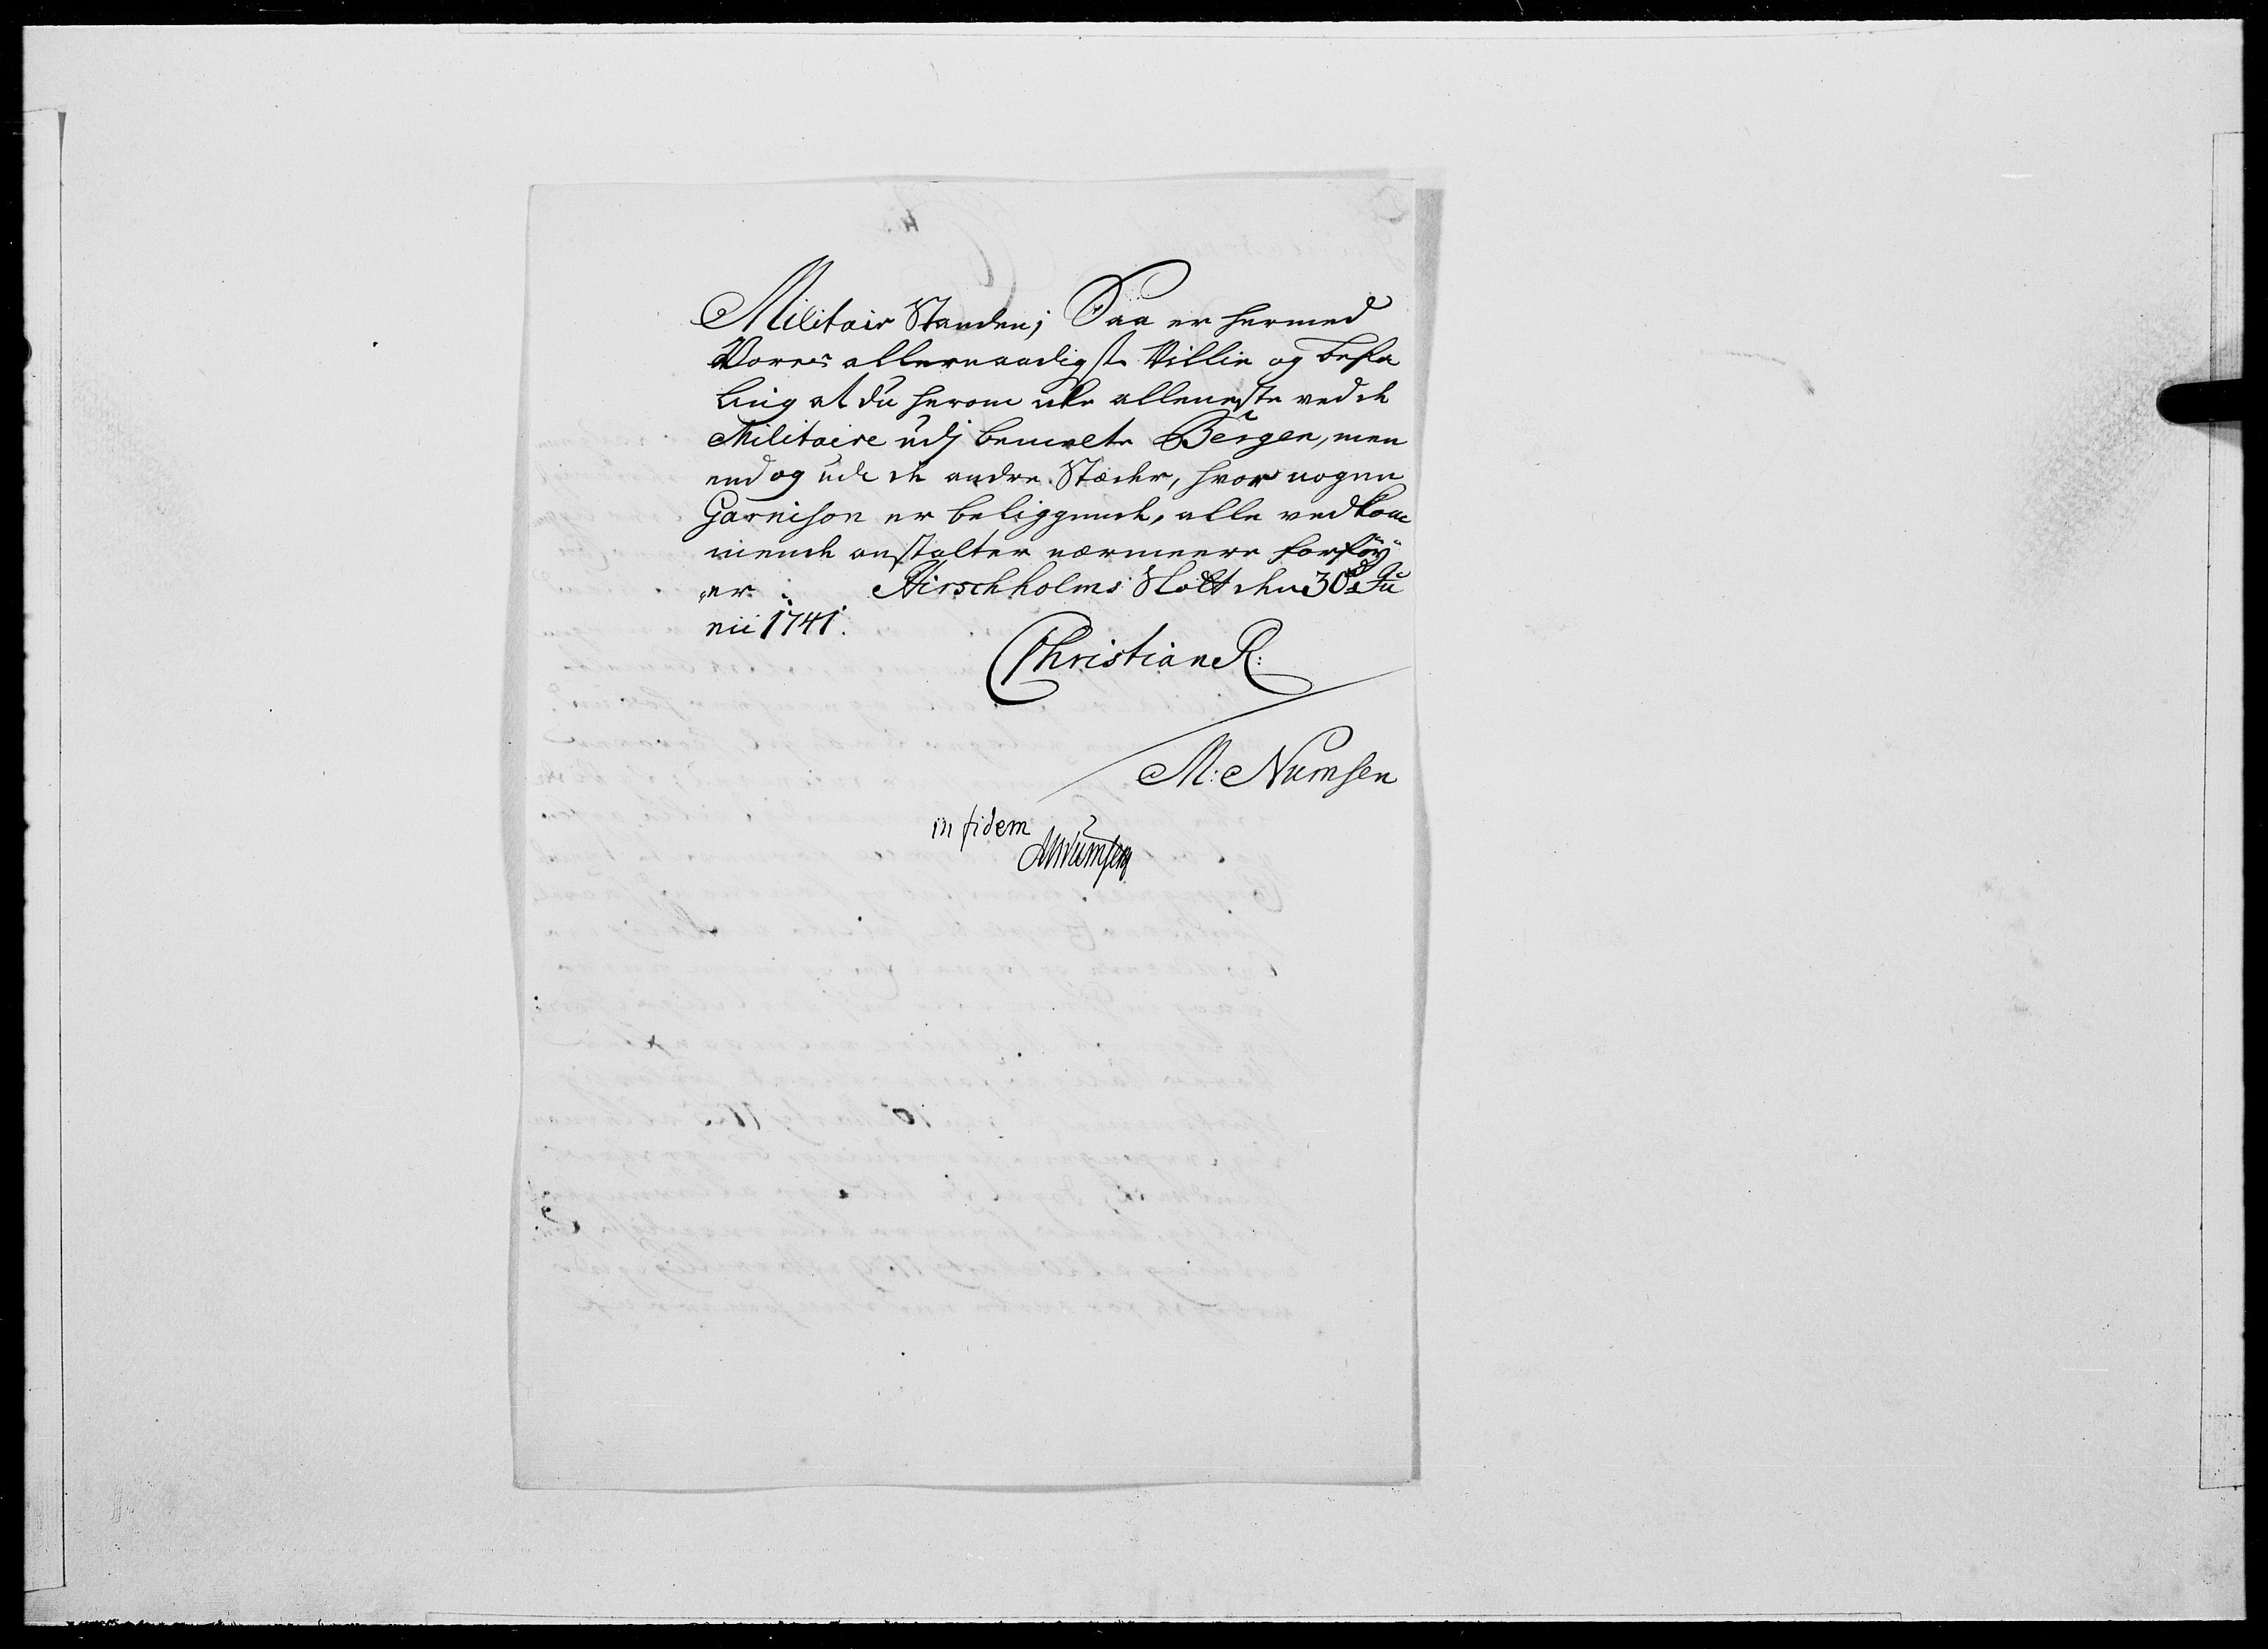 Militair Standen; Saa er hermed
Vores allernaadigste Villie og Befa
ling at du herom icke alleneste ved de
Militaire udj bemelte Bergen, men
end og ude de andre Stæder, hvor nogen
Garnison er beliggende, alle vedkom
mende anstalter nærmeere forföy
er. Hirschholms Slott den 30de Ju
nii 1741.
Christian R:
M: Numsen
in fidem
MNumsen